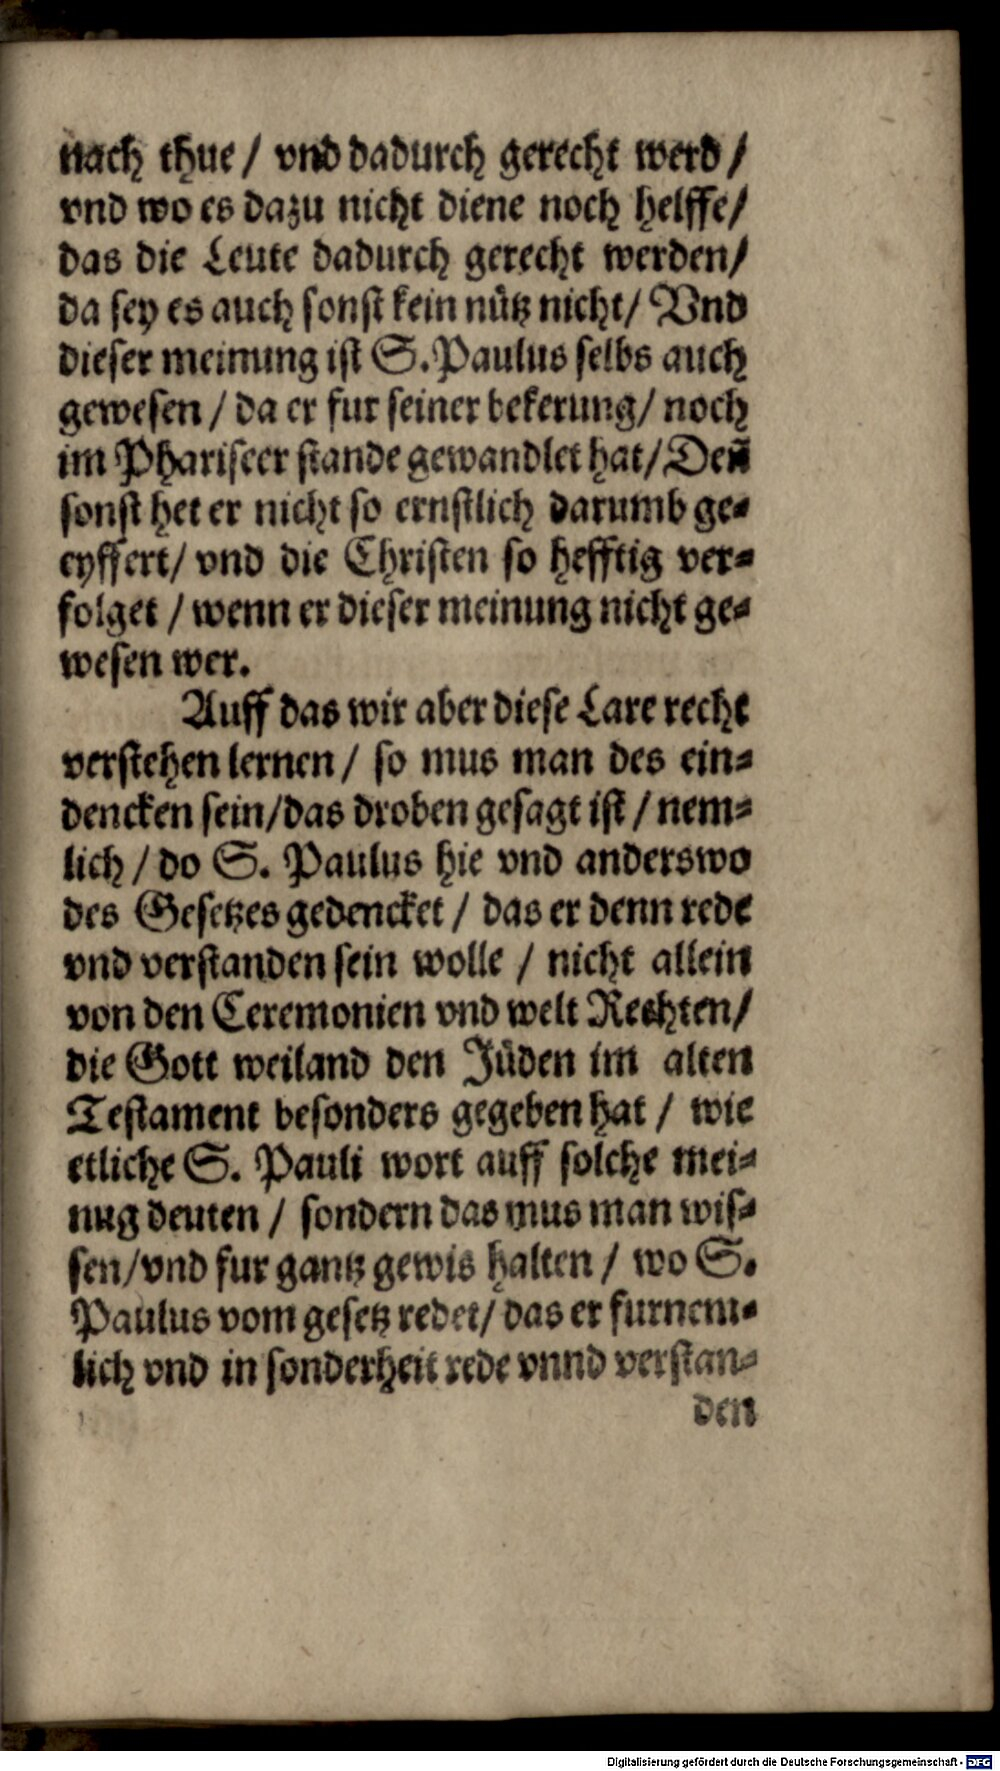 nach thue / vnd dadurch gerecht werd /
vnd wo es dazu nicht diene noch helffe /
das die Leute dadurch gerecht werden /
da sey es auch sonst kein nütz nicht / Vnd
dieser meinung ist S. Paulus selbs auch
gewesen / da er fur seiner bekerung / noch
im Phariseer stande gewandlet hat / Den̄
sonst het er nicht so ernstlich darumb ge⸗
eyffert / vnd die Christen so hefftig ver⸗
folget / wenn er dieser meinung nicht ge⸗
wesen wer.
Auff das wir aber diese Lare recht
verstehen lernen / so mus man des ein⸗
dencken sein / das droben gesagt ist / nem⸗
lich / do S. Paulus hie vnd anderswo
des Gesetzes gedencket / das er denn rede
vnd verstanden sein wolle / nicht allein
von den Ceremonien vnd welt Rechten /
die Gott weiland den Jüden im alten
Testament besonders gegeben hat / wie
etliche S. Pauli wort auff solche mei⸗
nug deuten / sondern das mus man wis⸗
sen / vnd fur gantz gewis halten / wo S.
Paulus vom gesetz redet / das er furnem⸗
lich vnd in sonderheit rede vnnd verstan⸗
den
Digitalisierung gefördert durch die Deutsche Forschungsgemeinschaft - DFG